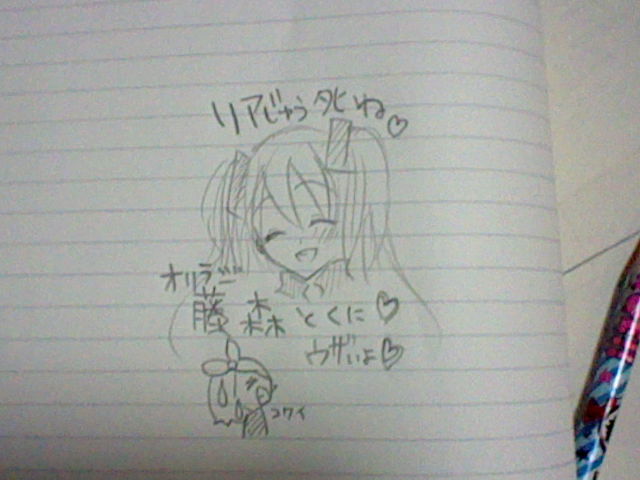 リアじゅう死ね♡
オリラジ
藤森 とくに♡
ウザいよ♡
コワイ